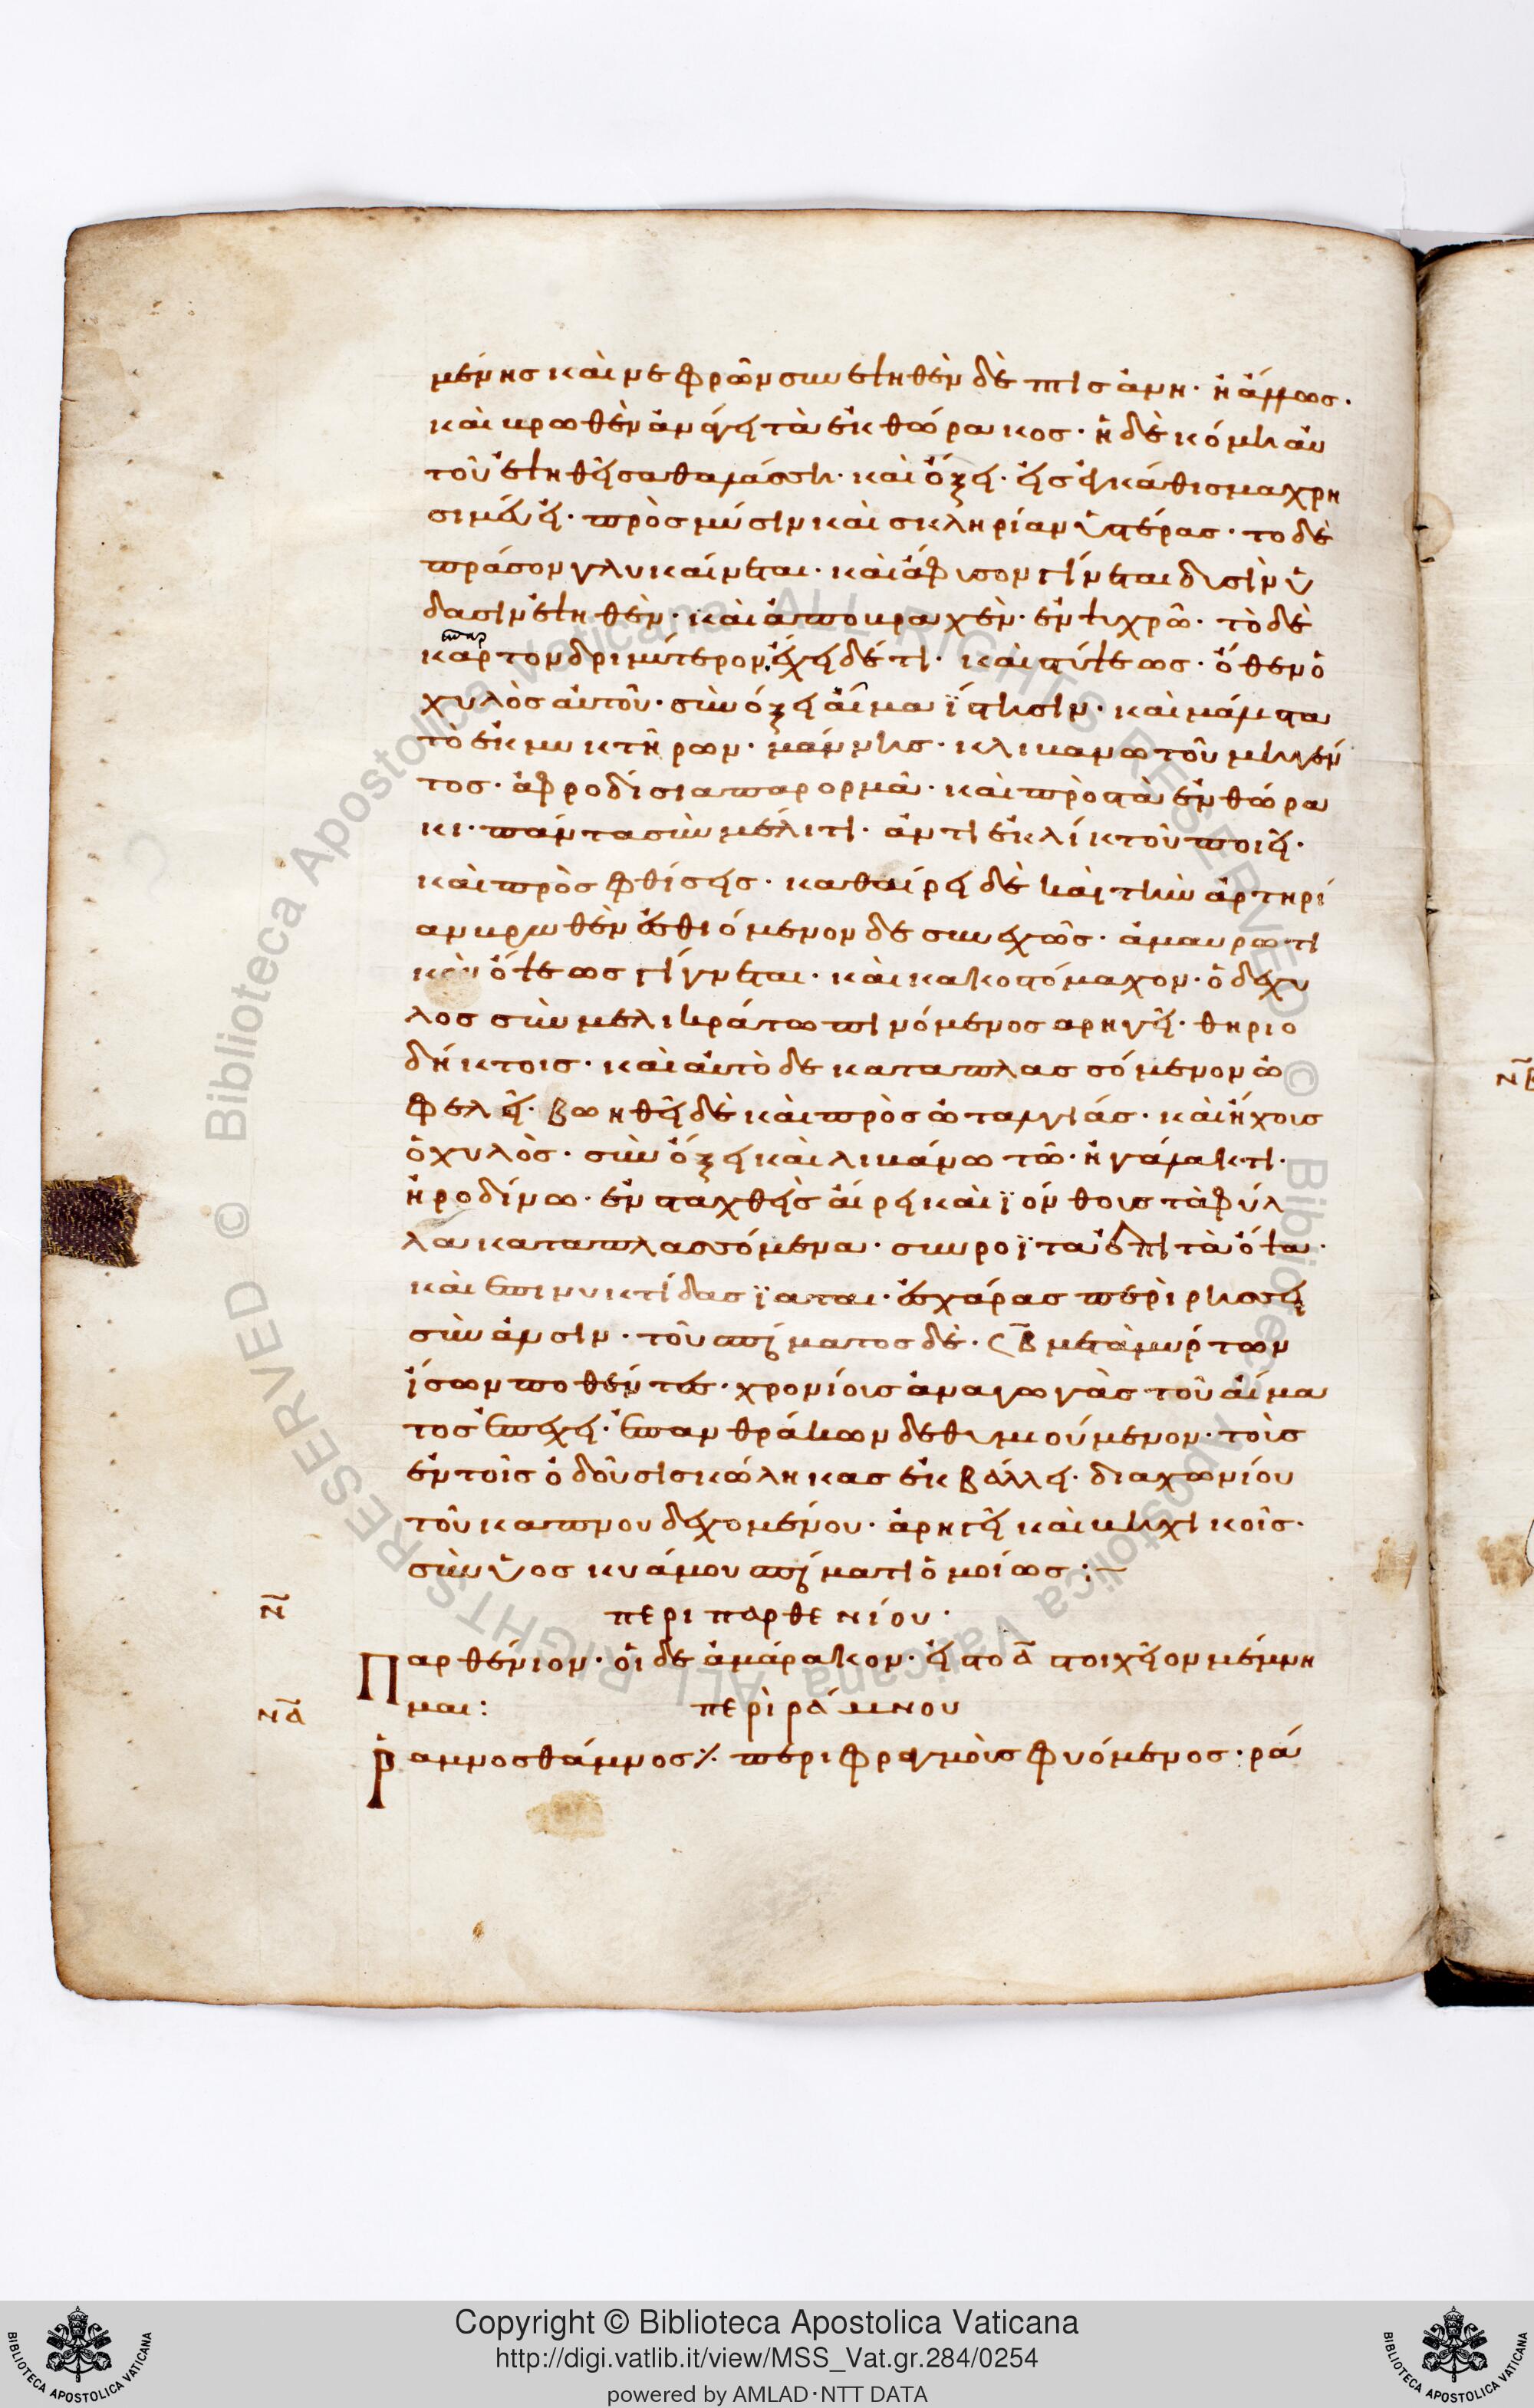 μένης καὶ νεφρῶν συνεψηθὲν δὲ πτισάνη· ἢ ἄλλως·
καὶ τρωθὲν ἀνάγει τὰ ἐκ θώρακος· ἡ δὲ κόμη αὐ
τοῦ ἑψηθεῖσα θαλάσση· καὶ ὄξει· εἰς ἐγκάθισμα χρη
σιμεύει· πρὸς μύσιν καὶ σκληρίαν ὑστέρας· το δὲ
πράσον γλυκαίνεται· καὶ ἄφυσον γίνεται δυσὶν ὕ
δασιν ἑψηθὲν· καὶ ἀποβραχὲν· ἐν ψυχρῶ· τὸ δὲ
καρτον δριμύτερον, ἔχει δέ τι· καὶ στύψεως· ὅθεν ὁ
χυλὸς αὐτοῦ· σὺν ὄξει αἷμα ἵστησιν· καὶ μάλιστα
τὸ ἐκ μυκτήρων· μάννης· λιβανωτοῦ μιγέν
τος· ἀφροδίσια παρορμᾶ· καὶ πρὸς τὰ ἐν θώρα
κι· πάντα σὺν μέλιτι· ἀντὶ ἐκλίκτοῦ ποιεῖ·
καὶ πρὸς φθίσεις· καθαίρει δὲ καὶ τὴν ἀρτηρί
αν βρωθὲν ἐσθιόμενον δὲ συνεχῶς· ἀμαυρωτι
κὸν ὄψεως γίγνεται· καὶ κακοστόμαχον· ὁ δὲ χυ
λος σὺν μελικράτω πινόμενος αρηγεῖ· θηριο
δήκτοις· καὶ αὐτὸ δε καταπλασσόμενον ὠ
φελεῖ· βοηθεῖ δὲ καὶ πρὸς ὠταλγίας· καὶ ἤχοις
ὁ χυλὸς· σὺν ὄξει καὶ λιβάνω τῶ· ἢ γάλακτι·
ἢ ροδίνω· ἐνσταχθεὶς αἴρει καὶ ϊόνθους τὰ φύλ
λα καταπλασσόμενα· σὺν ροῒ τα ἐπὶ τὰ ὄψα·
καὶ ἐπινυκτίδας ϊαται· ἐσχάρας περιρήσσει
σὺν ἁλσὶν· τοῦ σπέρματος δὲ· β̅ μετὰ μύρτων
ἴσων ποθέντες· χρονίοις ἀναγωγὰς τοῦ αἵμα
τος ἐπέχει· ἐπ' ανθράκων δε θυμιούμενον· τοὺς
ἐν τοῖς ὁδοῦσι σκώληκας ἐκβάλλει· διὰ χωνίου
τοῦ καπνου δεχομένου· ἀρήγει καὶ βηχικοῖς·
σὺν ὕος κυάμου σπέρματι ὁμοίως :~
ν̅ περι παρθενίου·
Παρθένιον· οἱ δὲ ἀμάρακον· εἰς το α̅ στοιχεῖον μέμνη
μαι :
να̅ περὶ ράμνου
Ράμνος θάμνος ·/. περι φραγμοὺς φυόμενος· ρά
Copyright © Biblioteca Apostolica Vaticana
http://digi.vatlib.it/view/MSS_Vat.gr.284/0254
powered by AMLAD·NTT DATA